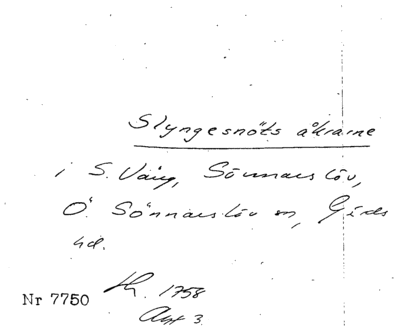 Slyngesnöts åkrarne
i S. Vång, Sönnarslöv,
Ö. Sönnarslöv sn, Gärds
hd.
Nr 7750 1758
Akt 3